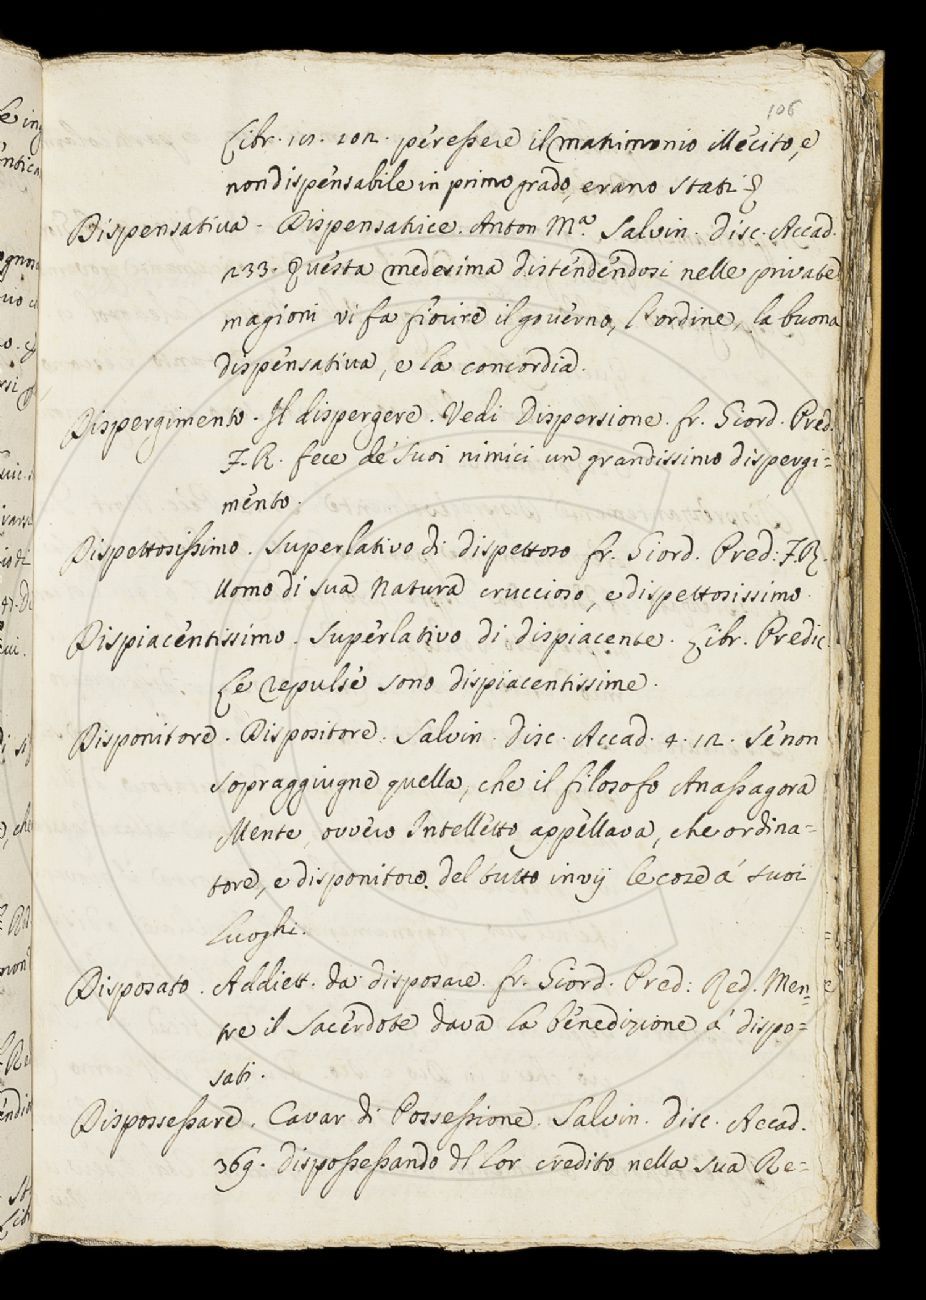 106
Libr. 101. 102. peressere il matrimonio illécito, e
nondispensabile in primo grado, erano stati &
Dispensativa. Dispensatrice. Anton Mª. Salvin. disc. Accad.
233. Questa medesima disténdéndosi nelle private
magioni vi fa fiorire il govérno, l'ordine, la buona
dispénsativa, e la concordia.
Dispergimento. Il dispergere. Vedi Dispersione. fr. Giord. Pred.
F. R. fece de' Suoi nimici un grandissimo dispergi=
ménto.
Dispettosissimo. Superlativo di dispettoso fr. Giord. Pred: F. R.
Uomo di sua Natura cruccioso, e dispettosissimo.
Dispiacéntissimo. Superlativo di dispiacente. Libr. Predic
Le repulsé sono dispiacentissime.
Disponitore. Dispositore. Salvin. disc. Accad. 4. 12. Sé non
sopraggiugne quella, che il filosofo Anassagora
Mente, ovvéro Intellétto appéllava, che ordina=
tore, e disponitore del tutto invij le cose á suoi
luoghi.
Disposato. Addiett. da disposare. fr. Giord. Pred: Red. Men=
tre il Sacérdote dava la bénedizione á dispo=
sati.
Dispossessare. Cavar di Possessione. Salvin. disc. Accad.
369. dispossessando dl lor credito nella sua Re=